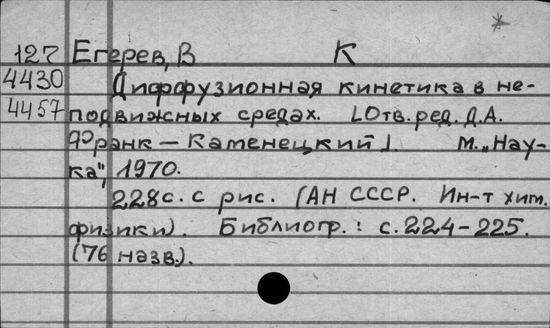 127 Егерев, В К
4430 Диффузионная кинетика в не-
4457 подвижных средах. [Отв. ред. Д.А.
Франк-Каменецкий]. М. „Нау-
ка", 1970.
228 с. с рис. (АН СССР. Ин-т хим.
физики). Библиогр.: с. 224-225.
(76 назв.).